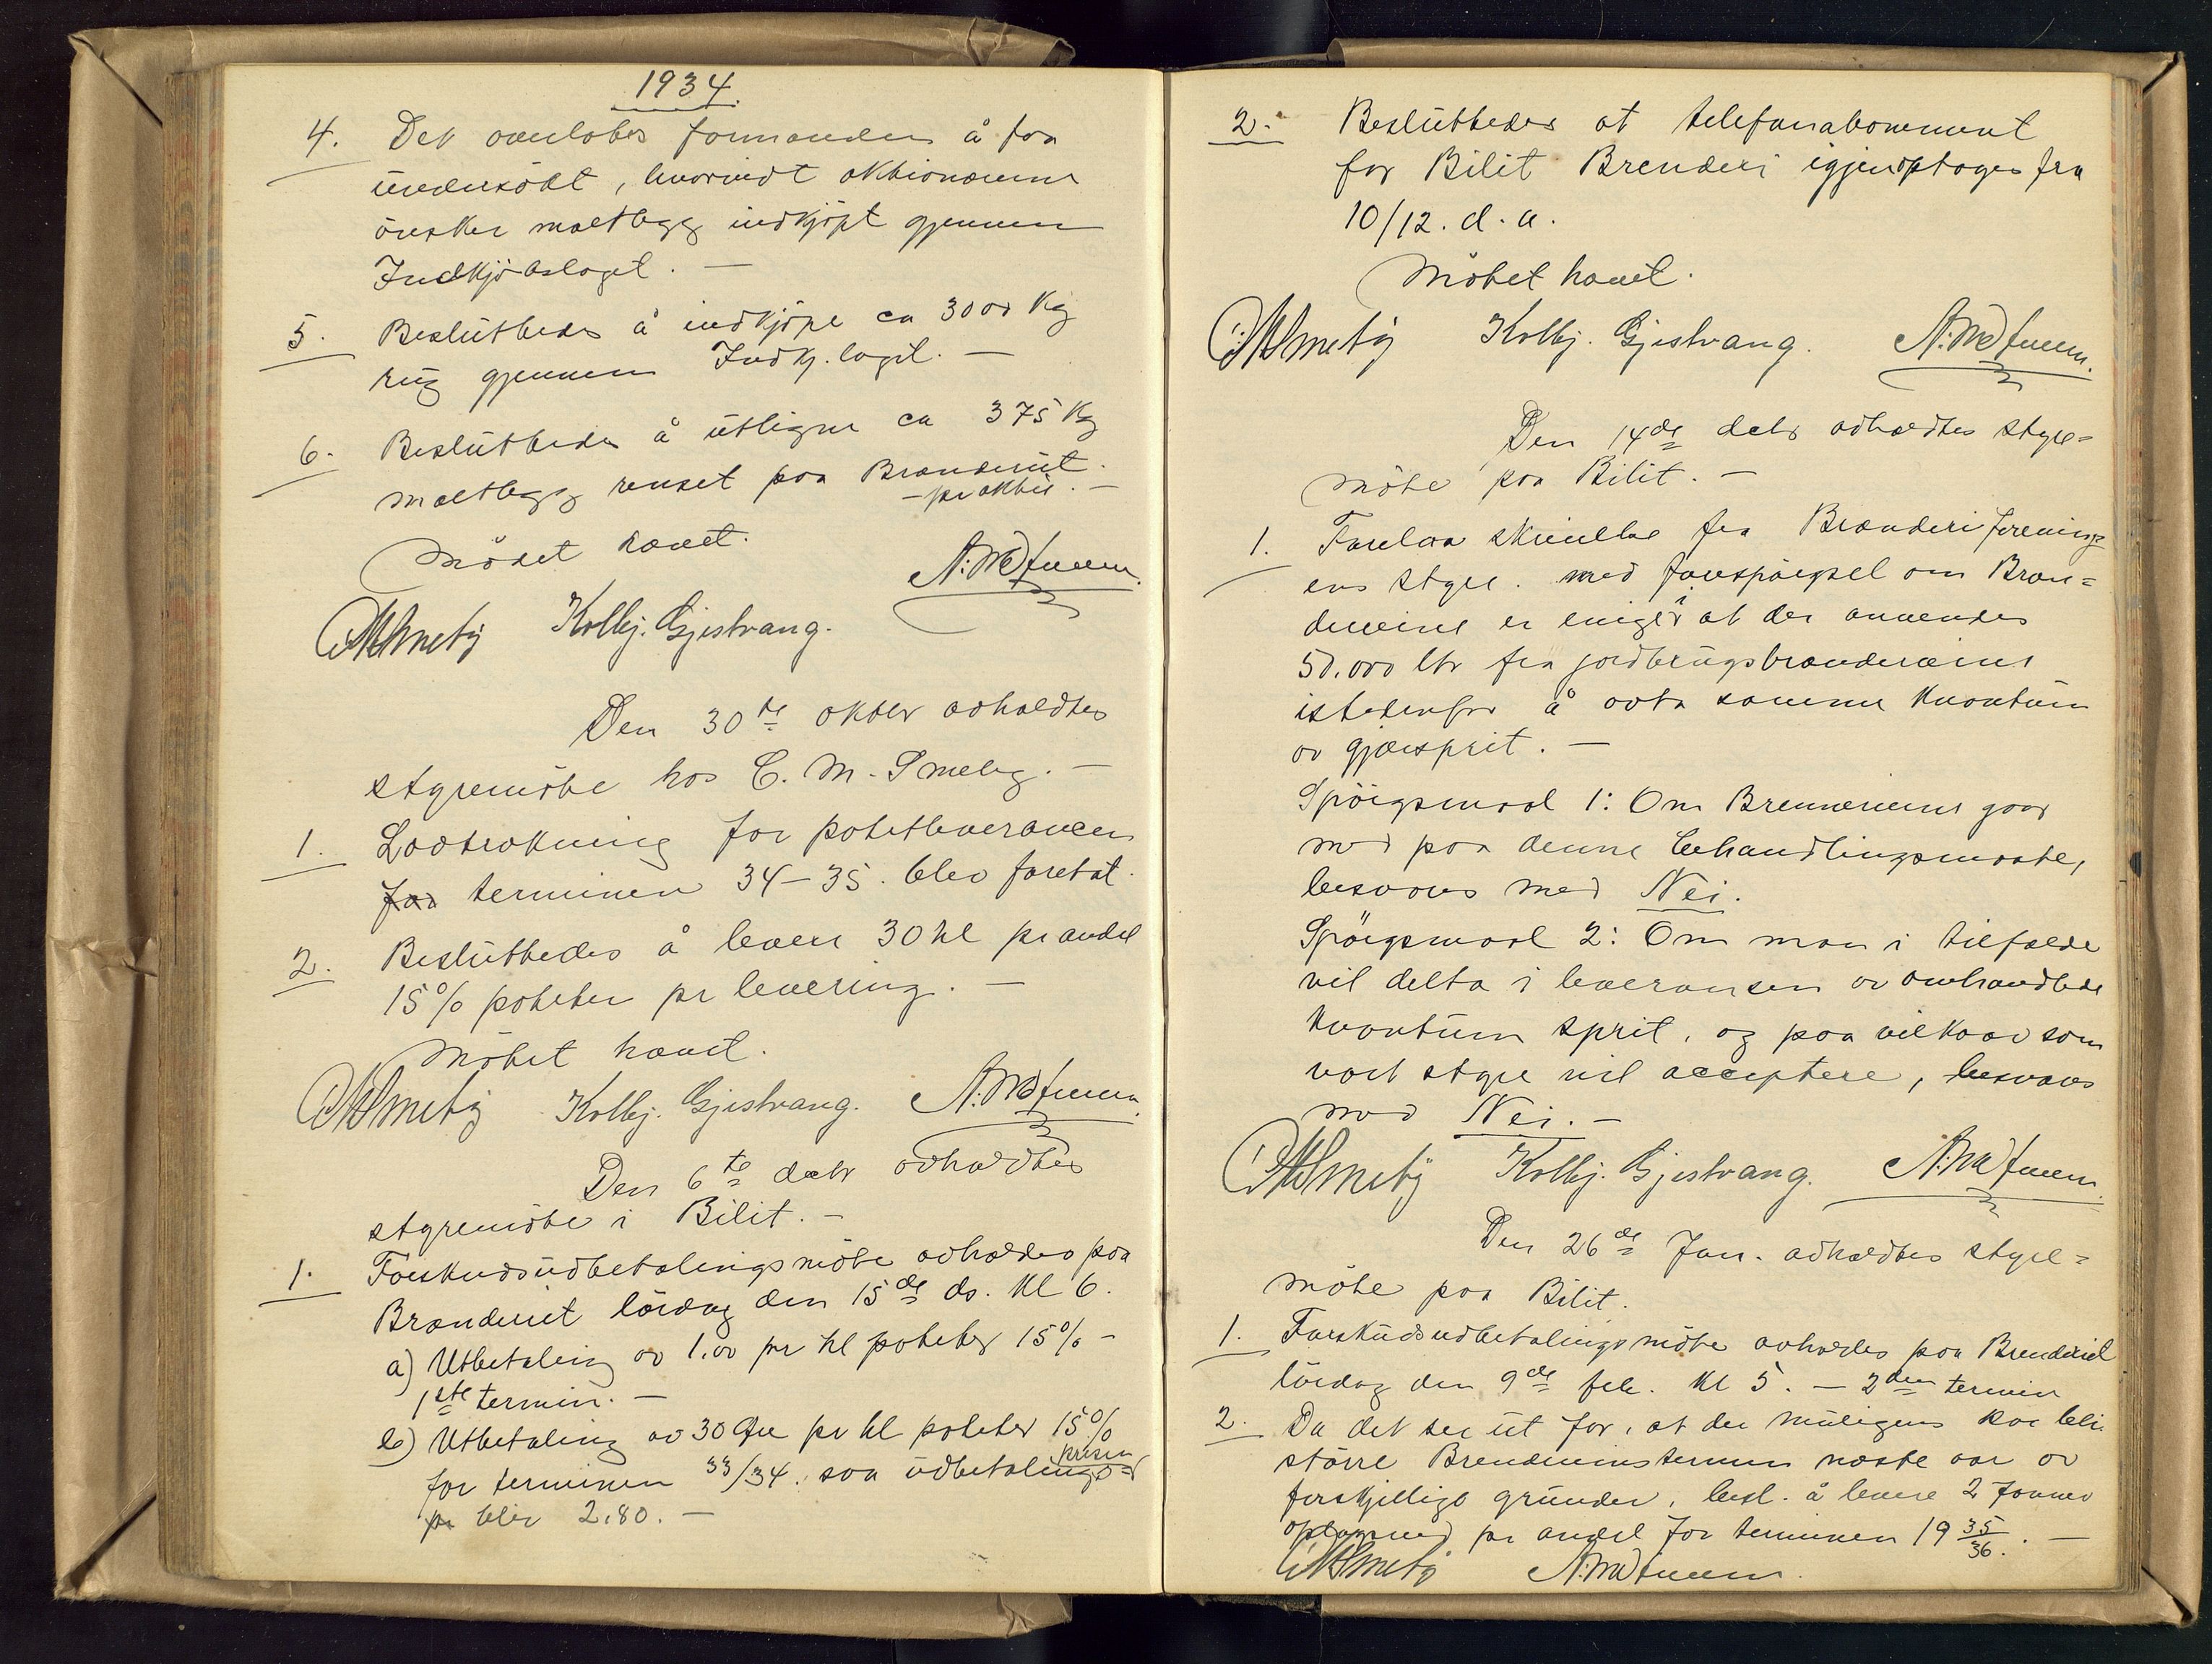 1934.
4. Det overlates formanden å faa
undersökt, hvorvidt aktionærerne
önsker maltbygg indkjöpt gjennem
Indkjöbslaget. —
5. Besluttedes å indkjöpe ca 3000 Kg
rug gjennem Indkj. laget. —
6. Besluttedes å utligne ca 375 Kg
maltbygg renset paa Brænderiet.
— pr aktie. —
Mödet hævet.
Kolbj. Gjestvang.
Den 30te oktbr avholdtes
styremöte hos C. M. Smeby. —
1. Lodtrækning for potetleverancen
for terminen 34–35. blev foretat.
2. Besluttedes å levere 30 hl pr andel
15% poteter pr levering. —
Mötet hævet.
Kolbj. Gjestvang.
Den 6te decbr avholdtes
styremöte i Bilit. —
1. Forskudsudbetalingsmöte avholdes paa
Brænderiet lördag den 15de ds. Kl 6.
a) Utbetaling av 1.00 pr hl poteter 15% –
1ste termin. —
b) Utbetaling av 30 Øre pr hl poteter 15%
for terminen 33/34. saa udbetalings=
prisen
pr blir 2.80. —
2. Besluttedes at telefonabonnement
for Bilit Brenderi igjenoptages fra
10/12. d. a.
Mötet hævet.
Kolbj. Gjestvang.
Den 14de decbr avholdtes styre=
möte paa Bilit. —
1. Forelaa skrivelse fra Brænderiforening
ens styre. med forespörgsel om Bræn=
derierne er enige i at der anvendes
50.000 ltr fra jordbrugsbrænderierne
istedenfor å avta samme kvantum
av gjærsprit. —
Spörgsmaal 1: Om Brenneriene gaar
med paa denne behandlingsmaate,
besvares med Nei.
Spörgsmaal 2: Om man i tilfælde
vil delta i leveransen av omhandlede
kvantum sprit, og paa vilkaar som
vort styre vil acceptere, besvares
med Nei. —
Kolbj. Gjestvang.
Den 26de Jan. avholdtes styre=
möte paa Bilit.
1. Forskudsudbetalingsmöte avholdes paa Brenderiet
lördag den 9de feb. Kl 5. — 2den termin
2. Da det ser ut for, at der muligens kan bli
större Brenderiestermin næste aar av
forskjellige grunder, besl. å levere 2 Favner
pr andel for terminen 19 35/36. —